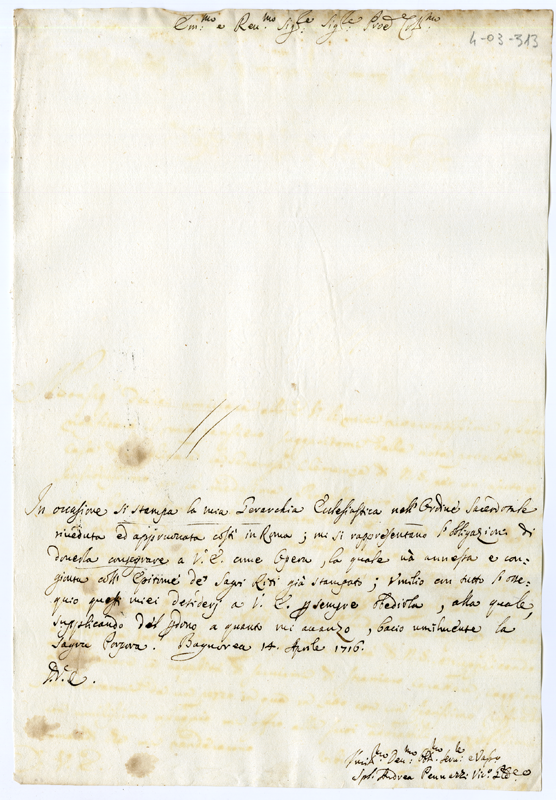 Em:mo e Rev:mo Sig:re Sig:re Prone Col:mo
4-03-313
In occasione si stampa la mia Gerarchia Ecclesiastica nell'Ordine Sacerdotale
riveduta ed approvata costì in Roma; mi si rappresentano l'obligazioni di
doverla consecrare a V. E. come Opera, la quale và annessa e con-
giunta coll' de' Sagri Riti già stampato; Umilio con tutto l'osse-
quio questi miei desiderj a V. E. p sempre obedirla, alla quale,
supplicando del pdono a quanto mi avanzo, bacio umilmente la
Sagra Porpora. Bagnorea 14. Aprile 1716.
D. V. E.
Umil:mo Dev:mo Obl:mo Ser:re e Vasso
Andrea Pennazzi Vic:o